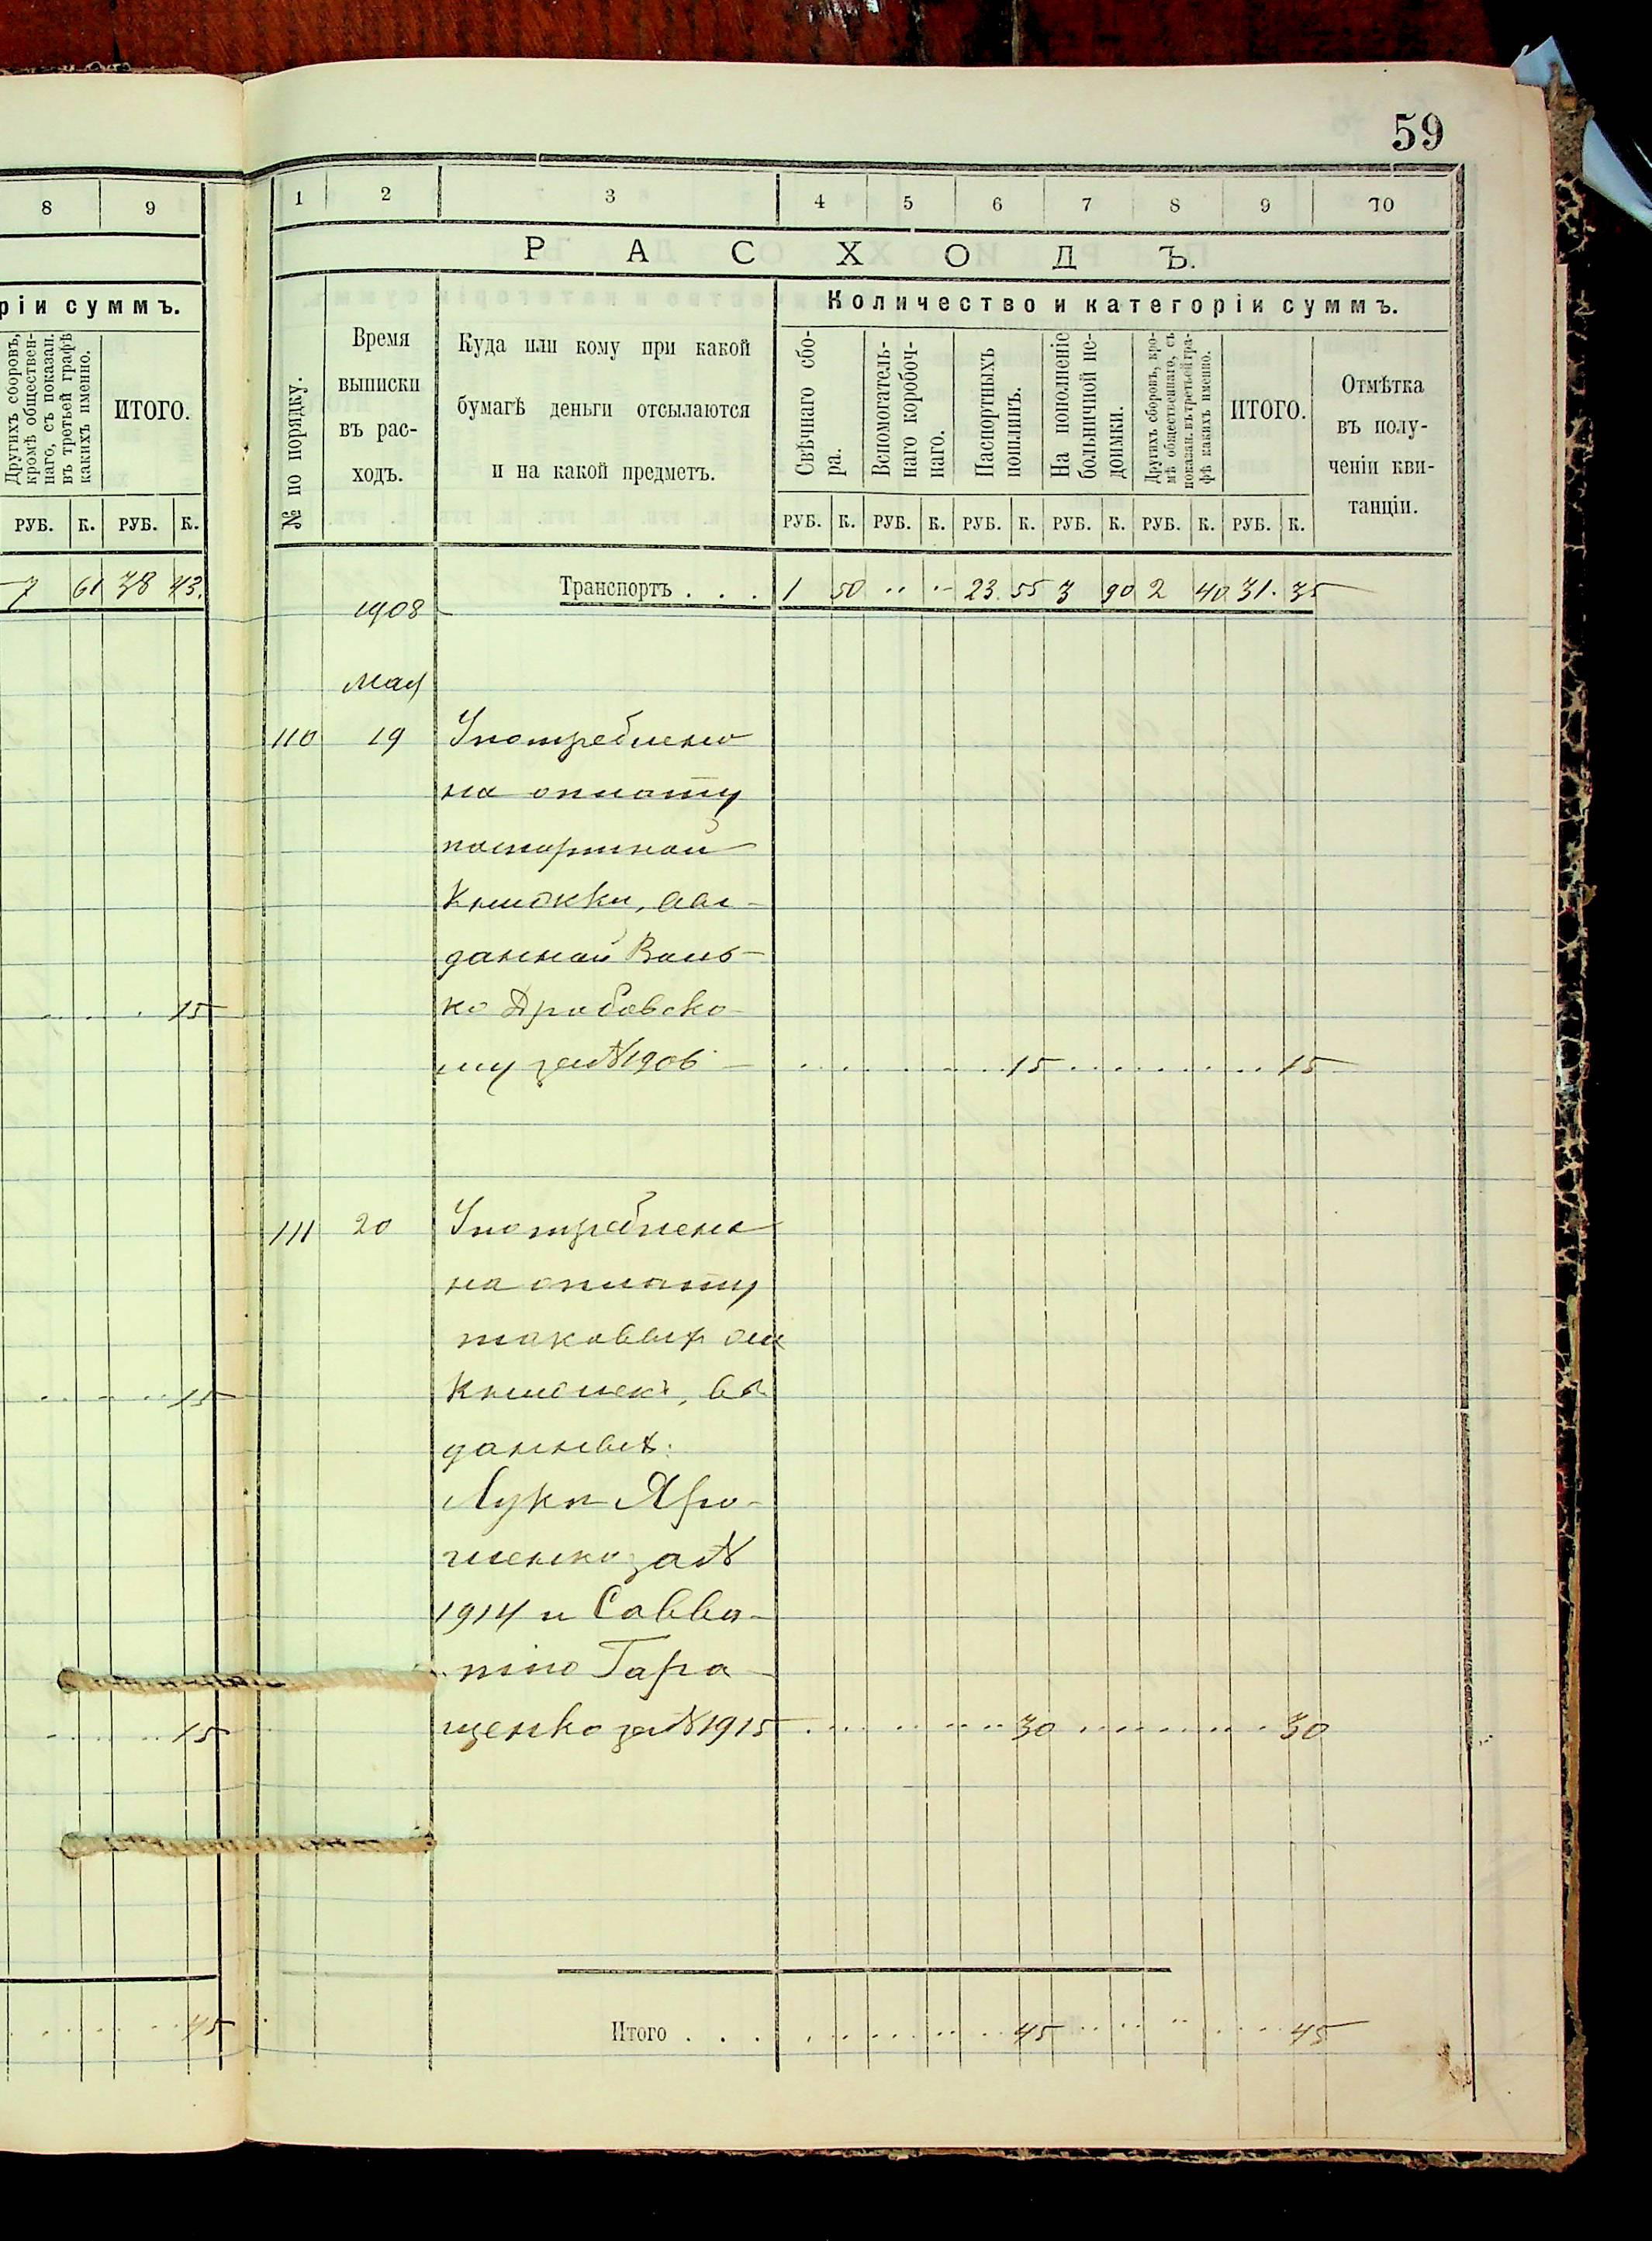 59
8 9
ріи суммъ.
Другихъ сборовъ,
кромѣ обществен-
наго, съ показан.
въ третьей графѣ
какихъ именно.
ИТОГО.
РУБ. К. РУБ. К.
7 61 38 43.
15
15
15
45
1 2 3 4 5 6 7 8 9 10
РАСХОДЪ.
№ по порядку.
Время
выписки
въ рас-
ходъ.
Куда или кому при какой
бумагѣ деньги отсылаются
и на какой предметъ.
Количество и категоріи суммъ.
Свѣчнаго сбо-
ра.
Вспомогатель-
наго коробоч-
наго.
Паспортныхъ
пошлинъ.
На пополненіе
больничной не-
доимки.
Другихъ сборовъ, кро-
мѣ общественнаго, съ
показан. въ третьей гра-
фѣ какихъ именно.
ИТОГО.
Отмѣтка
въ полу-
ченіи кви-
танціи.
РУБ. К. РУБ. К. РУБ. К. РУБ. К. РУБ. К. РУБ. К.
Транспортъ . . . 1 50 23. 55 3 90 2 40 31. 35
1908
Мая
110 19 Употреблено
на оплату
паспортной
книжки, вы-
данной
ко Дробовско-
му за № 1906 15 15
111 20 Употреблено
на оплату
таковыхъ же
книжекъ, вы
данныхъ:
Луки Яро-
шенко за №
1914 и Савва-
тію Гара-
щенко за № 1915 30 30
Итого . . . 45 45